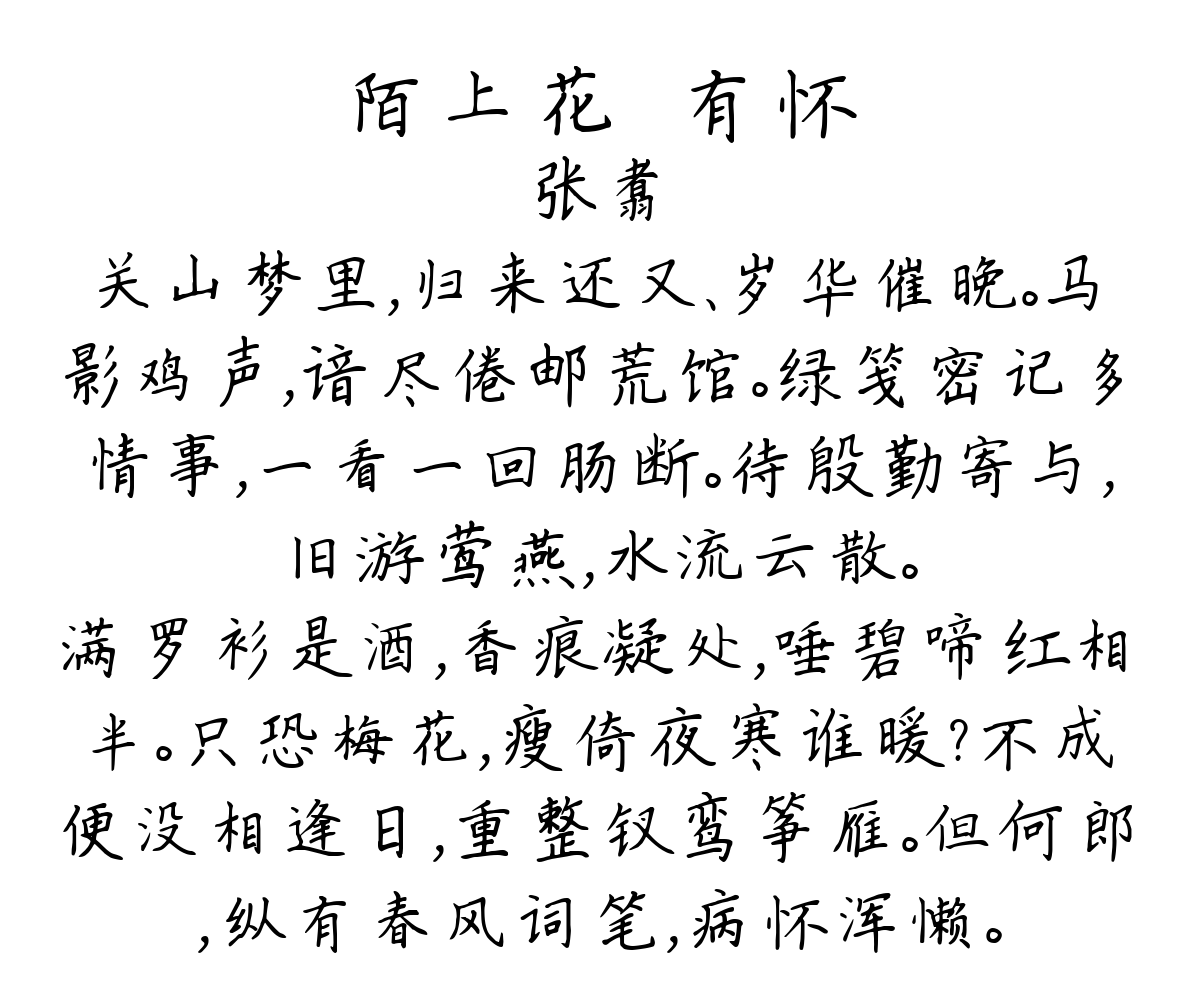 陌上花 有怀
张翥
关山梦里,归来还又、岁华催晚。马
影鸡声,谙尽倦邮荒馆。绿笺密记多
情事,一看一回肠断。待殷勤寄与,
旧游莺燕,水流云散。
满罗衫是酒,香痕凝处,唾碧啼红相
半。只恐梅花,瘦倚夜寒谁暖?不成
便没相逢日,重整钗鸾筝雁。但何郎
,纵有春风词笔,病怀浑懒。